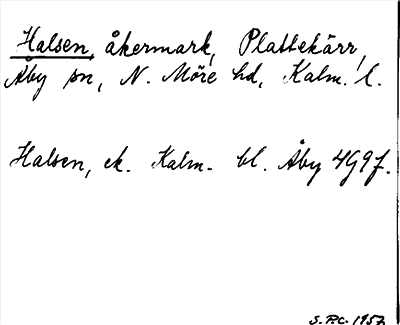 Halsen, åkermark, Plattekärr,
Åby sn, N. Möre hd, Kalm. l.
Halsen, ek. Kalm. bl. Åby 4G9f.
S.P.C. 1957